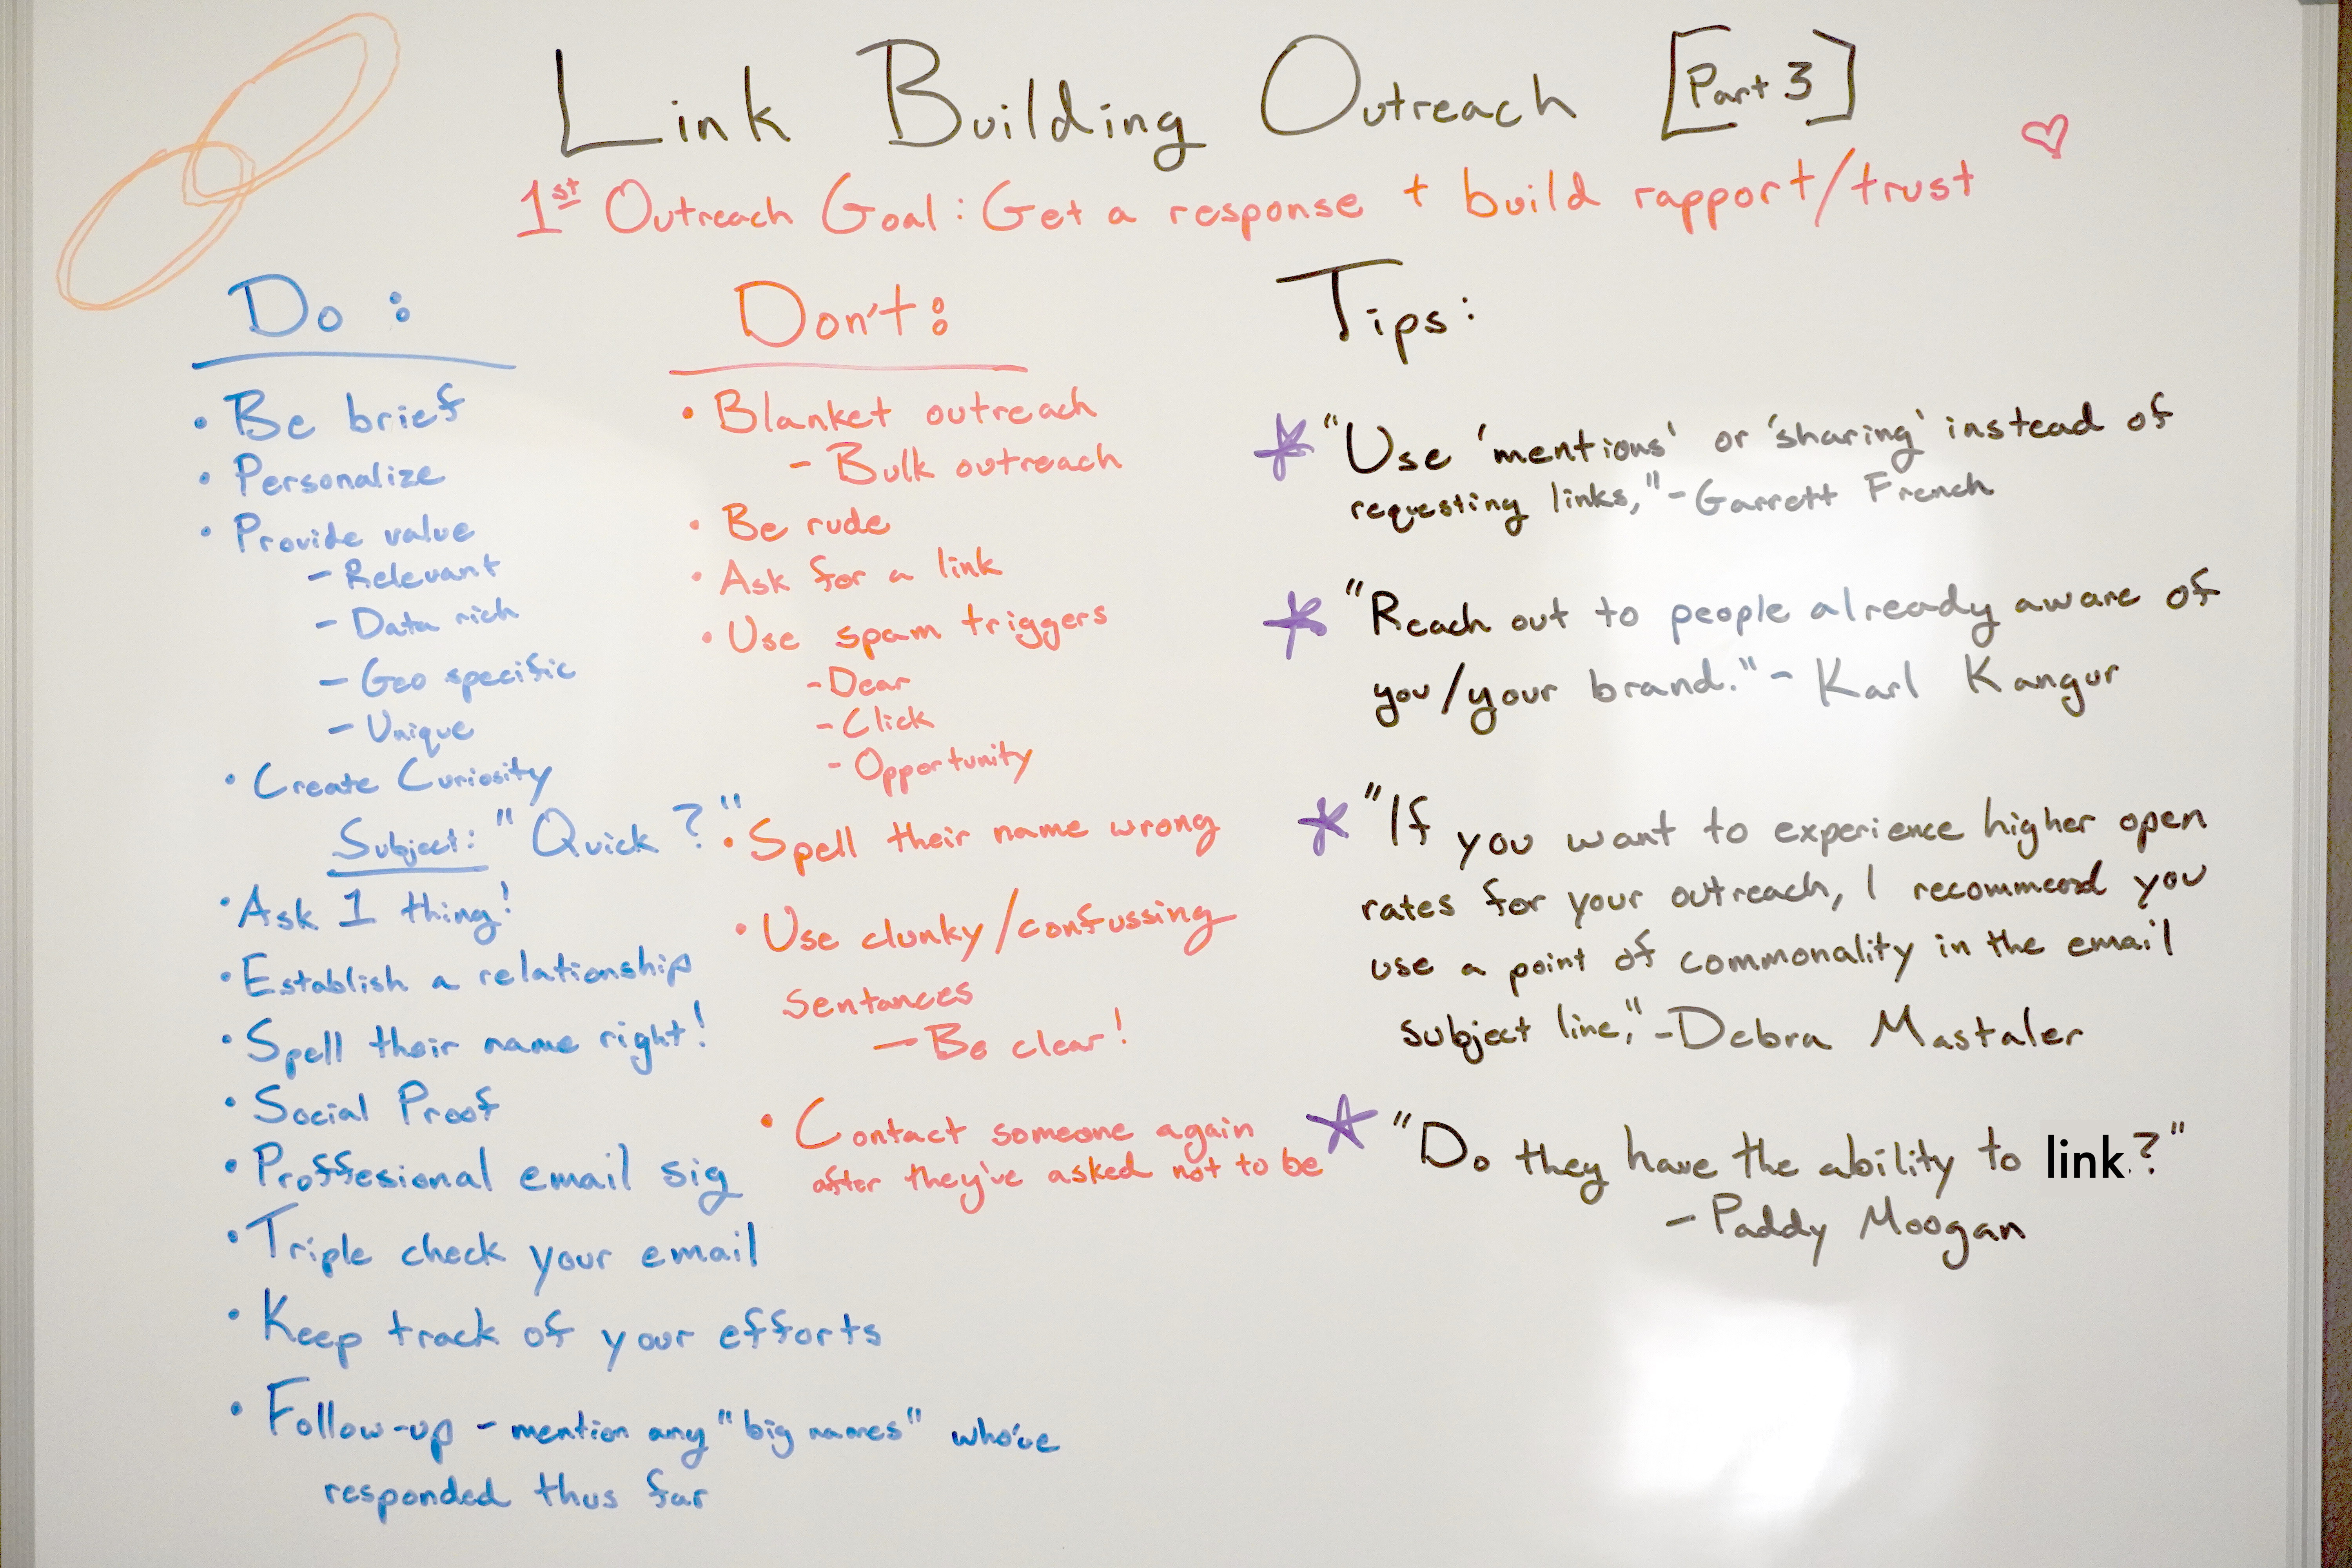 Link Building Outreach [Part 3]
1st Outreach Goal: Get a response + build rapport/trust
Do:
• Be brief
• Personalize
• Provide value
- Relevant
- Data rich
- Geo specific
- Unique
• Create Curiosity
Subject: "Quick ?"
• Ask 1 thing!
• Establish a relationship
• Spell their name right!
• Social Proof
• Proffesional email sig
• Triple check your email
• Keep track of your efforts
• Follow-up - mention any "big names" who've
responded thus far
Don't:
• Blanket outreach
- Bulk outreach
• Be rude
• Ask for a link
• Use spam triggers
- Dear
- Click
- Opportunity
• Spell their name wrong
• Use clunky/confussing
sentances
- Be clear!
• Contact someone again
after they've asked not to be
Tips:
* "Use 'mentions' or 'sharing' instead of
requesting links," - Garrett French
* "Reach out to people already aware of
you/your brand." - Karl Kangur
* "If you want to experience higher open
rates for your outreach, I recommend you
use a point of commonality in the email
subject line," - Debra Mastaler
* "Do they have the ability to link.?"
- Paddy Moogan